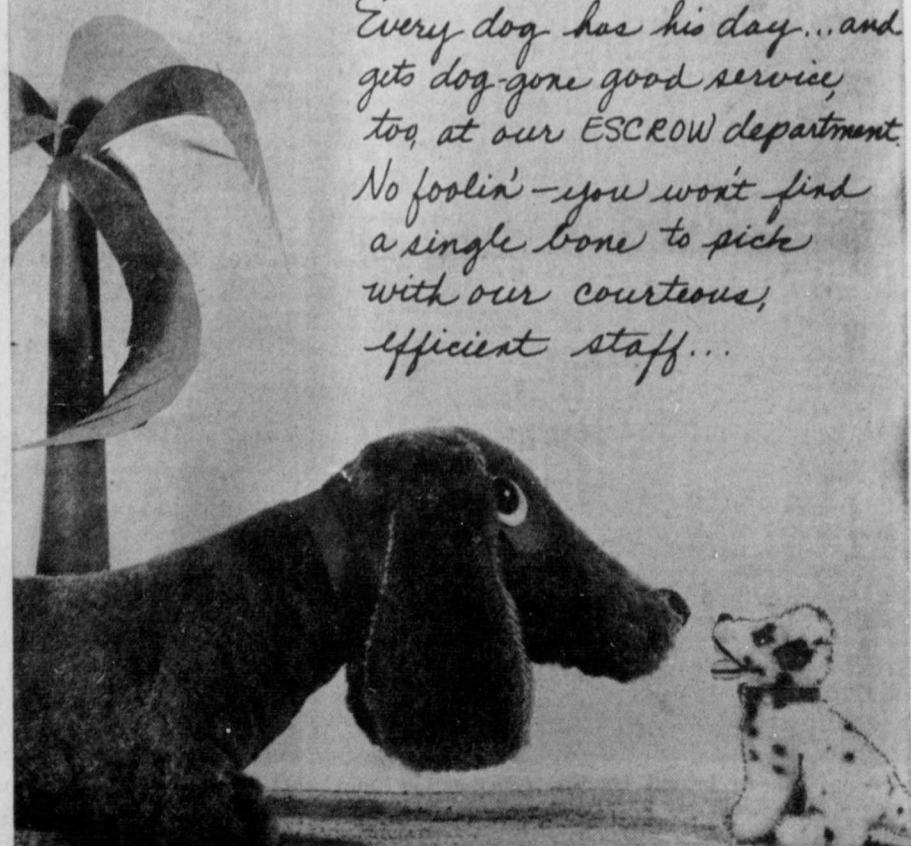 Every dog has his day...and
gets dog-gone good service,
too, at our ESCROW department.
No foolin' - you won't find
a single bone to pick
with our courteous,
efficient staff...